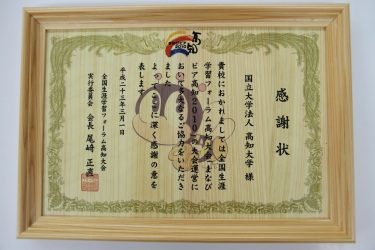 感謝状
国立大学法人 高知大学 様
貴校におかれましては全国生涯
学習フォーラム高知大会「まなび
ピア高知2010」の大会運営に
おいて多大なるご協力をいただき
ました
よってここに深く感謝の意を
表します
平成二十三年三月一日
全国生涯学習フォーラム高知大会
実行委員会 会長 尾﨑 正直